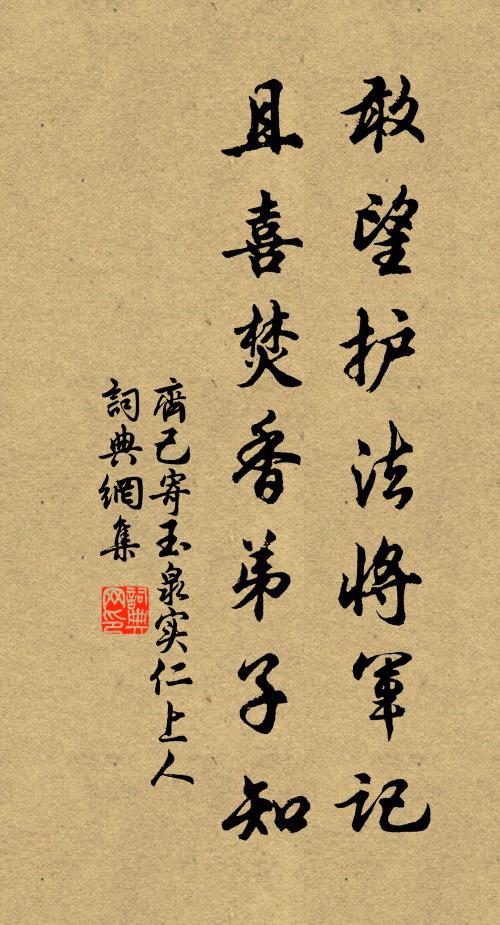 敢望护法将軍记
且喜焚香弟子知
齊己寄玉泉实仁上人
詞典網集
詞典网印